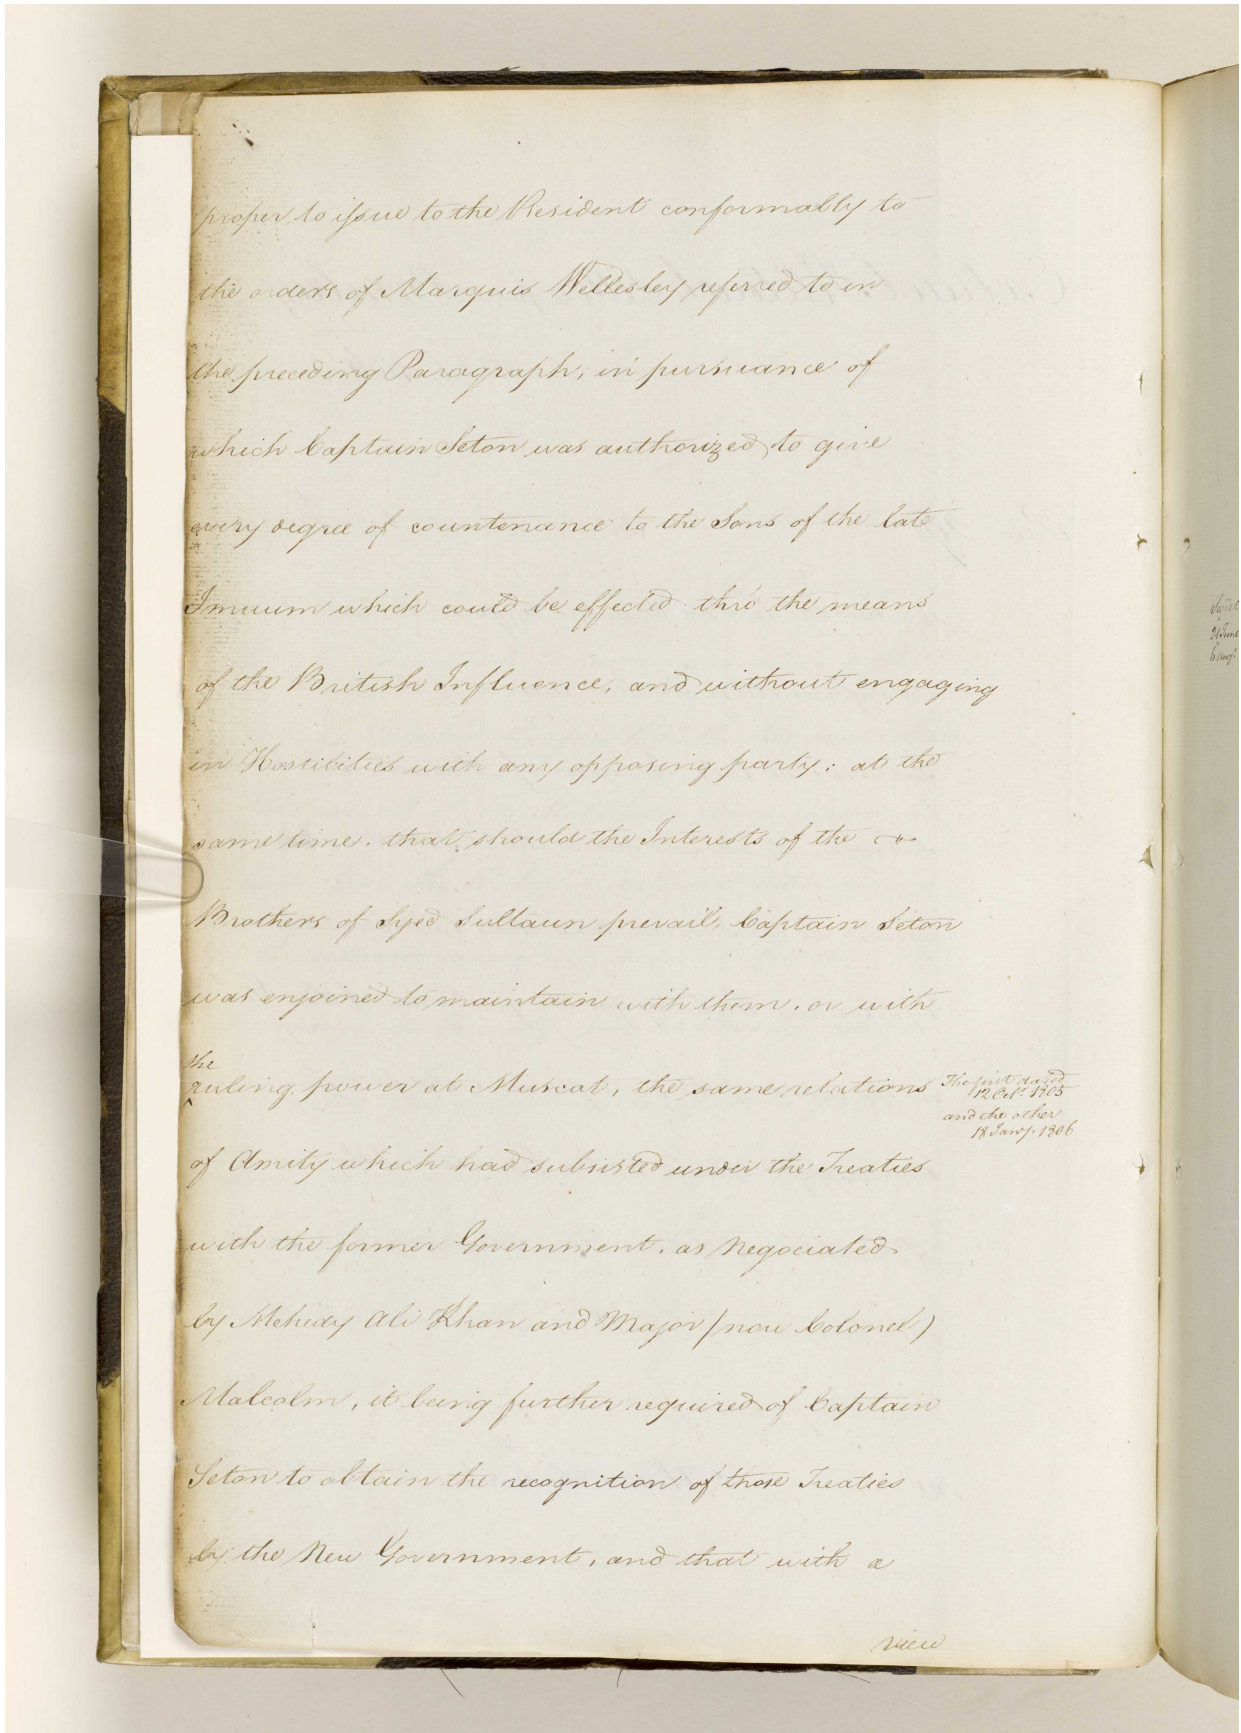 proper to issue to the Resident conformably to
the orders of Marquis Wellesley referred to in
the preceding Paragraph; in pursuance of
which Captain Seton was authorized to give
every degree of countenance to the Sons of the late
Imaum which could be effected thro' the means
of the British Influence, and without engaging
in Hostilities with any opposing party: at the
same time, that should the Interests of the
Brothers of Syed Sultaun prevail, Captain Seton
was enjoined to maintain with them, or with
the
ruling power at Muscat, the same relations
The first dated
12 Octr. 1805
and the other
18 Jany. 1806
of Amity which had subsisted under the Treaties
with the former Government, as Negociated
by Mehedy Ali Khan and Major (now Colonel)
Malcolm, it being further required of Captain
Seton to obtain the recognition of those Treaties
by the New Government, and that with a
view
21 June